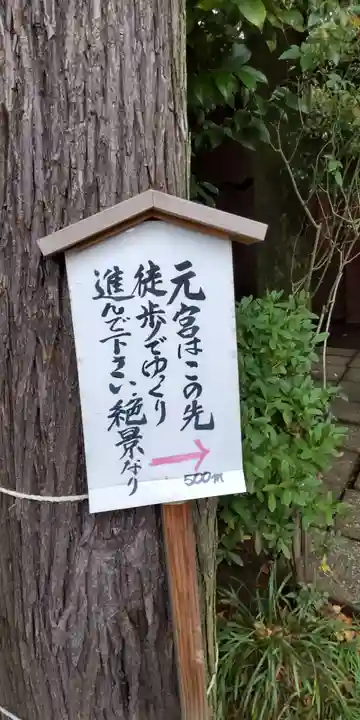 元宮はこの先
徒歩でゆっくり
進んで下さい、絶景なり
500m